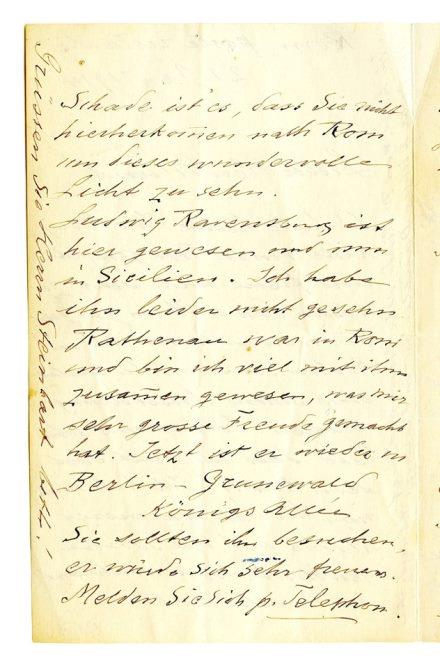 Schade ist es, dass Sie nicht
hierherkom̄en nach Rom
um dieses wundervolle
Licht zu sehn.
Ludwig Ravensburg ist
hier gewesen und nun
in Sicilien. Ich habe
ihn leider nicht gesehn
Rathenau war in Rom
und bin ich viel mit ihm
zusam̄en gewesen, was mir
sehr grosse Freude gemacht
hat. Jetzt ist er wieder in
Berlin - Grunewald
Königs Allée
Sie sollten ihn besuchen,
er würde sich sehr freuen.
Melden Sie Sich p. Telephon.
Grüssen Sie Herrn Steinbart